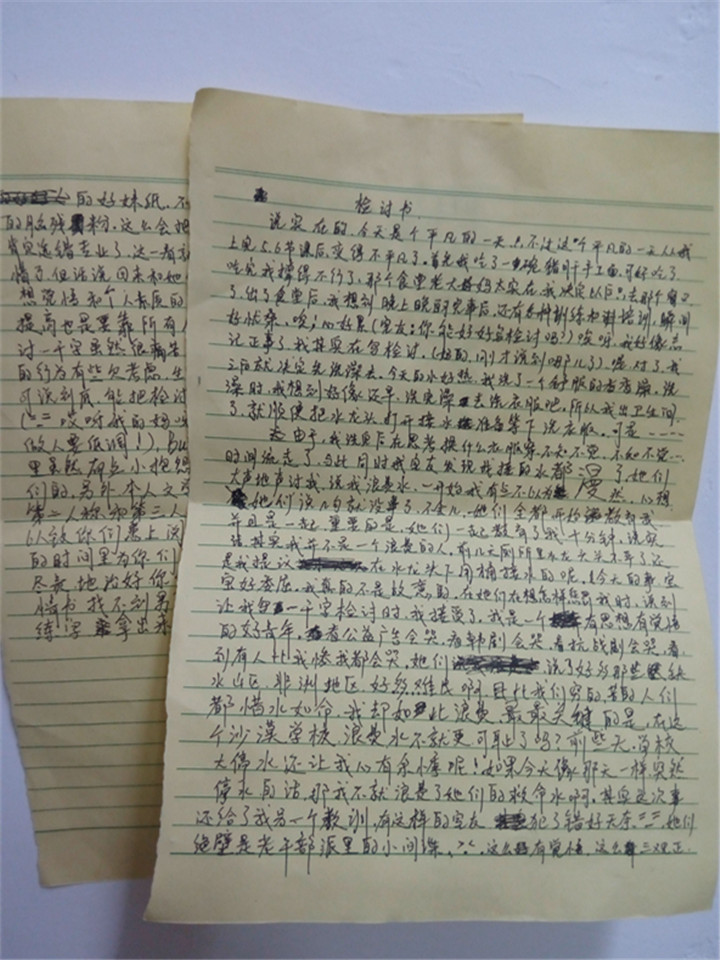 的好妹纸，不
的脑残粉，这么会把
肯定选错专业了，这一看就
惜了，但话说回来和她
想觉悟和个人素质的
提高也是要靠所有人
讨一千字虽然很痛苦
的行为有些欠考虑，生
可谈到底，能把检讨
做人要低调！），bu
里虽然有点小抱怨
们的，另外，本人文
第二人称和第三人
以致你们患上阅
的时间里为你们
尽最地治好你
情书找不到男
练字拿出来
检讨书
说实在的，今天是个平凡的一天，只不过这个平凡的一天从我
上完5、6节课后，变得不平凡了。首先我吃了一碗猪肝手工面，可好吃了，
吃完我撑得不行了，那个食堂老大妈妈太实在，我决定以后只去那个窗口
了，出了食堂后，我想到晚上晚自习完事后，还有各种训练和材料培训，瞬间
好忧桑，唉；心好累（室友：你能好好写检讨吗？）哎呀，我好像忘
记正事了，我其实在写检讨，（好的，刚才说到哪儿了）嗯，对了，我
之后就决定先洗澡去，今天的水好热，我洗了一个舒服的香香澡，洗
澡时，我想到好像还早，洗完澡去洗衣服吧，所以我出卫生间
了，就顺便把水龙头打开接水准备等下洗衣服，可是----
由于，我洗完后在思考换什么衣服穿，不知不觉，不知不觉--
时间流走了，与此同时我室友发现我接的水都漫了，她们
大声地声讨我，说我浪费水，一开始我有点不以为然，心想
她们说几句就没事了，不会儿，她们全都开始教育我
并且是一起，重要的是，她们一起教育了我十分钟，说实
话其实我并不是一个浪费的人，前几天厕所里水龙头关不早了还
是我提议在水龙头下用桶接水的呢，今天的事实
实好委屈，我真的不是故意的，在她们在想怎样惩罚我时，谈到
让我写一千字检讨时，我接受了，我是一个有思想有觉悟
的好青年，看公益广告会哭，看韩剧会哭，看抗战剧会哭，看
到有人比我惨我都会哭，她们说了好多那些缺
水山区，非洲地区，好多难民啊，且比我们穷的，苦的人们
都惜水如命，我却如此浪费，最最关键的是，在这
个沙漠学校，浪费水不就更可耻了吗？前些天，学校
大停水，还让我心有余悸呢！如果今天像那天一样，突然
停水的话，那我不就浪费了她们的救命水啊。其实这次事
还给了我另一个教训，有这样的室友犯了错好天奈，她们
绝壁是老干部派里的小间谍，这么有觉悟，这么三观正